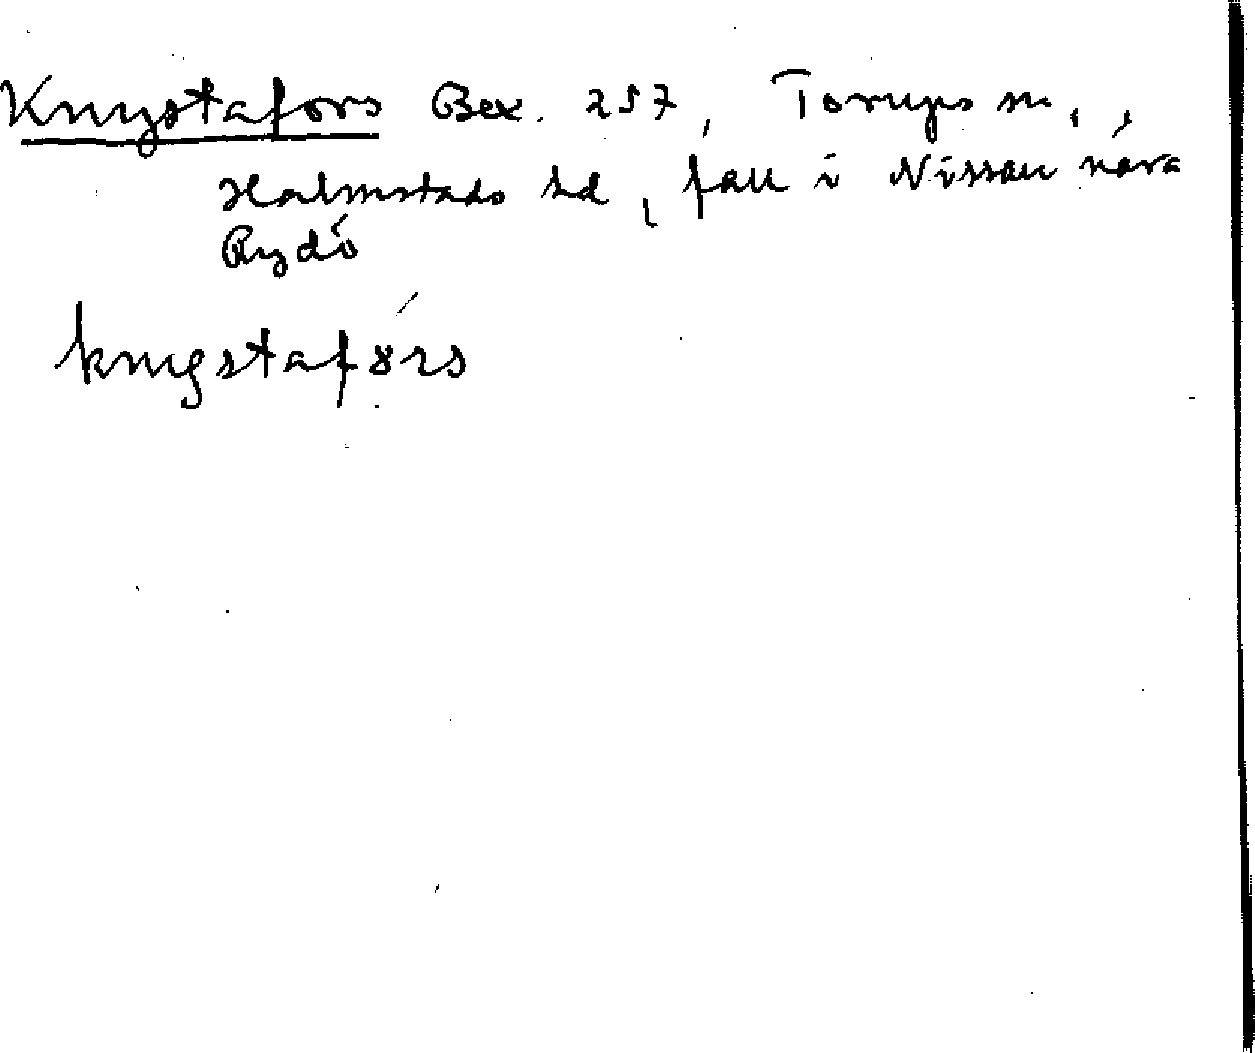 Knystafors Bex. 257, Torups sn.,
Halmstads hd, fall i Nissan nära
Rydö
knystafors